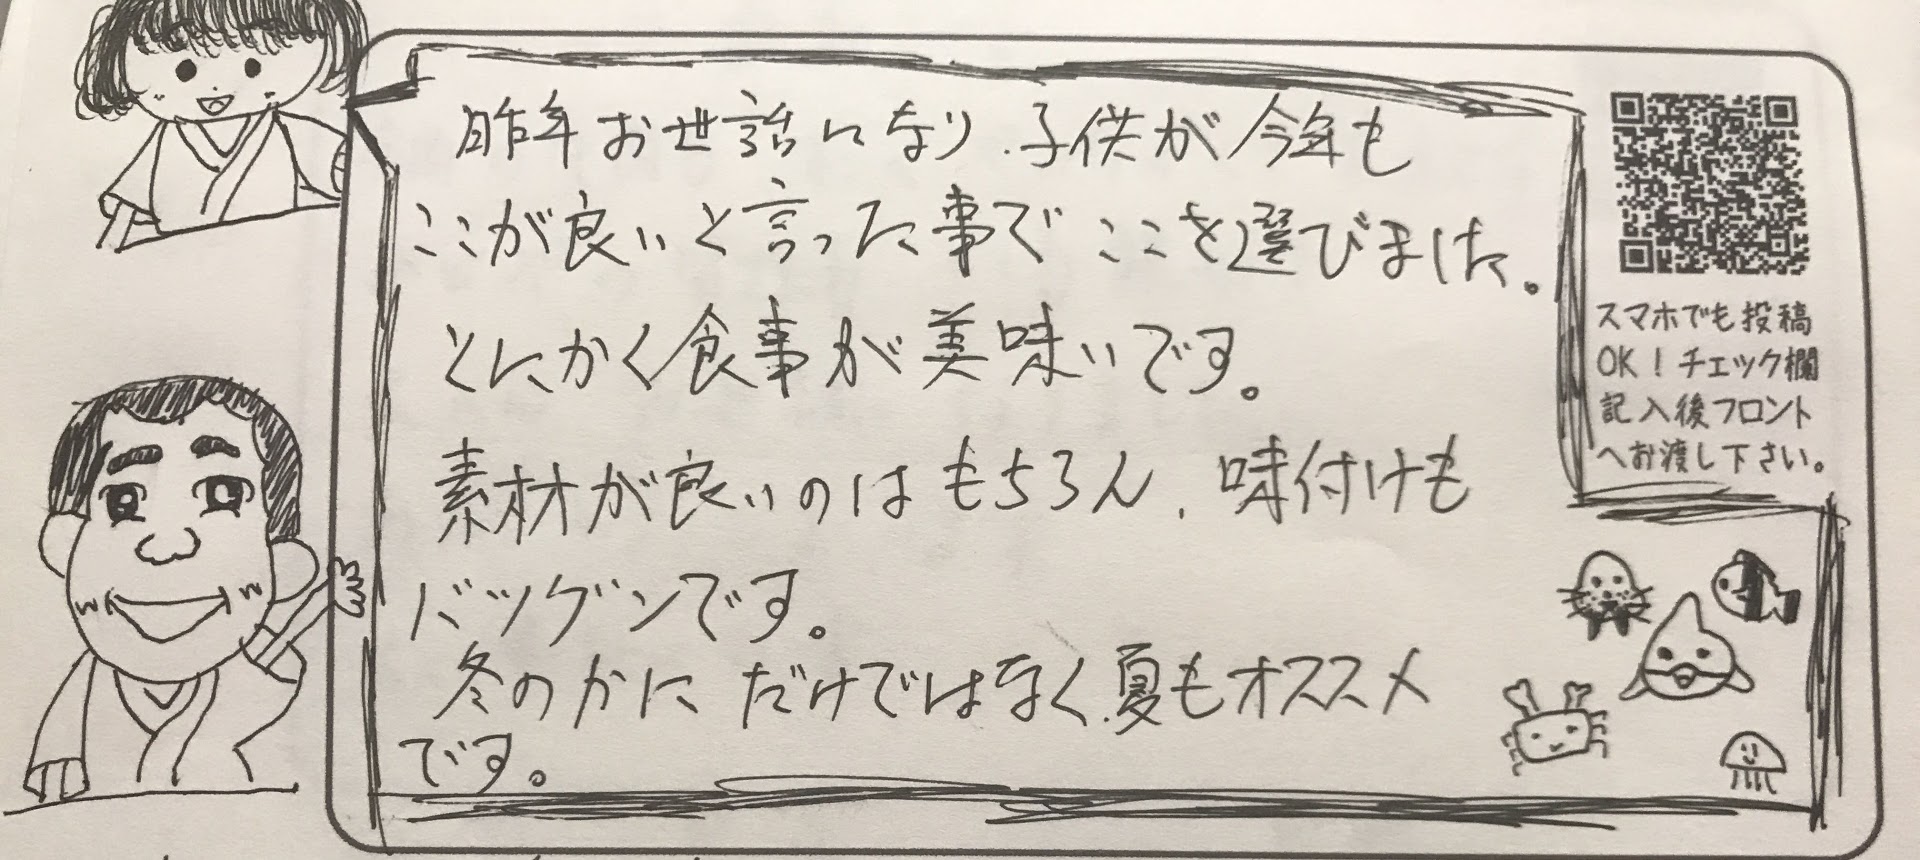 昨年お世話になり、子供が今年も
ここが良いと言った事でここを選びました。
とにかく食事が美味いです。
素材が良いのはもちろん、味付けも
バツグンです。
冬のかにだけではなく、夏もオススメ
です。
スマホでも投稿
OK！チェック欄
記入後フロント
へお渡し下さい。